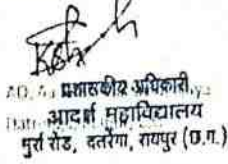 प्रशासकीय अधिकारी,
आदर्श महाविद्यालय
मुर्रा रोड, दतरेंगा, रायपुर (छ.ग.)